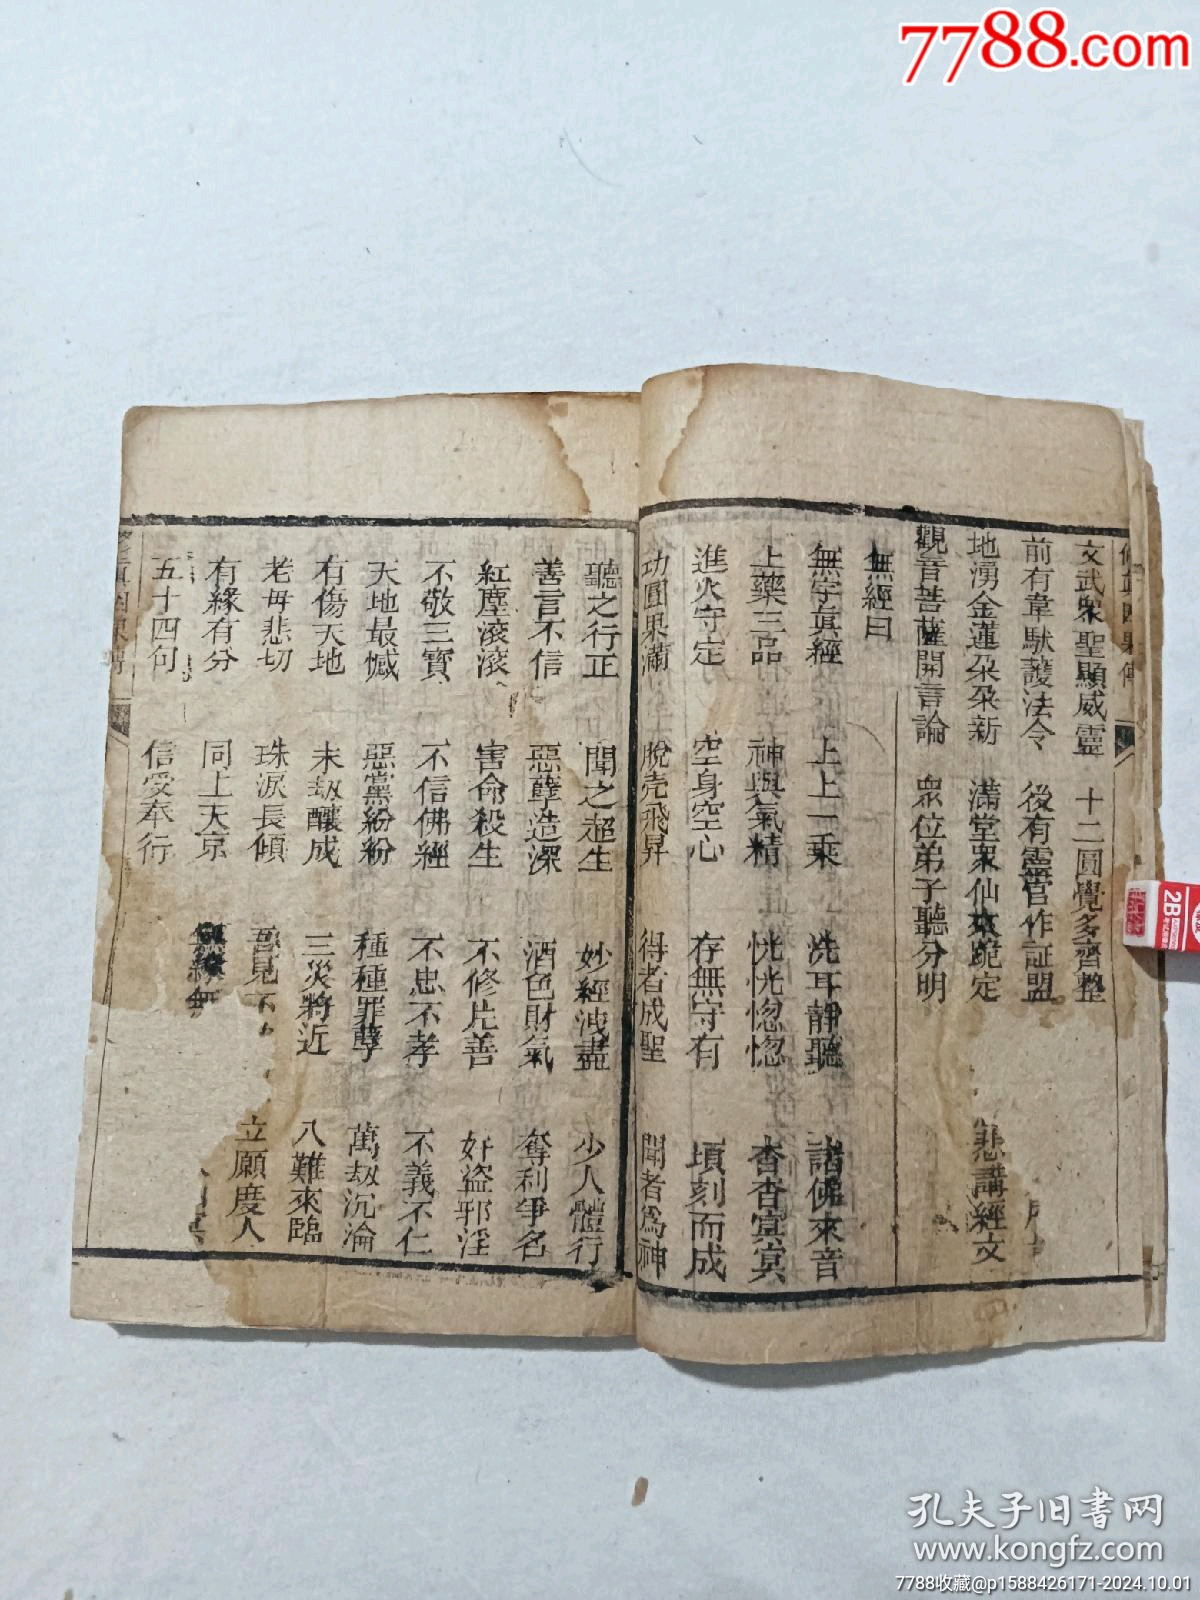 7788.com
文武衆聖顯威靈 十二圓覺多齊整
前有韋馱護法令 後有靈官作証盟
地湧金蓮朶朶新 滿堂衆仙來跪定 悲講經文
觀音菩薩開言論 衆位弟子聽分明
無經曰
無字眞經 上上一乘 洗耳靜聽 諸佛來音
上藥三品 神與氣精 恍恍惚惚 杳杳冥冥
進火守定 空身空心 存無守有 頃刻而成
功圓果滿 脫壳飛昇 得者成聖 聞者爲神
聽之行正 聞之超生 妙經洩盡 少人體行
善言不信 惡孽造深 酒色財氣 奪利爭名
紅塵滾滾 害命殺生 不修片善 奸盜邪淫
不敬三寶 不信佛經 不忠不孝 不義不仁
天地最憾 惡黨紛紛 種種罪孽 萬刼沉淪
有傷天地 末刼釀成 三災將近 八難來臨
老母悲切 珠淚長傾 吾見不 立願度人
有緣有分 同上天京 無緣無
五十四句 信受奉行
2B
孔夫子旧书网
www.kongfz.com
7788收藏@p1588426171-2024.10.01